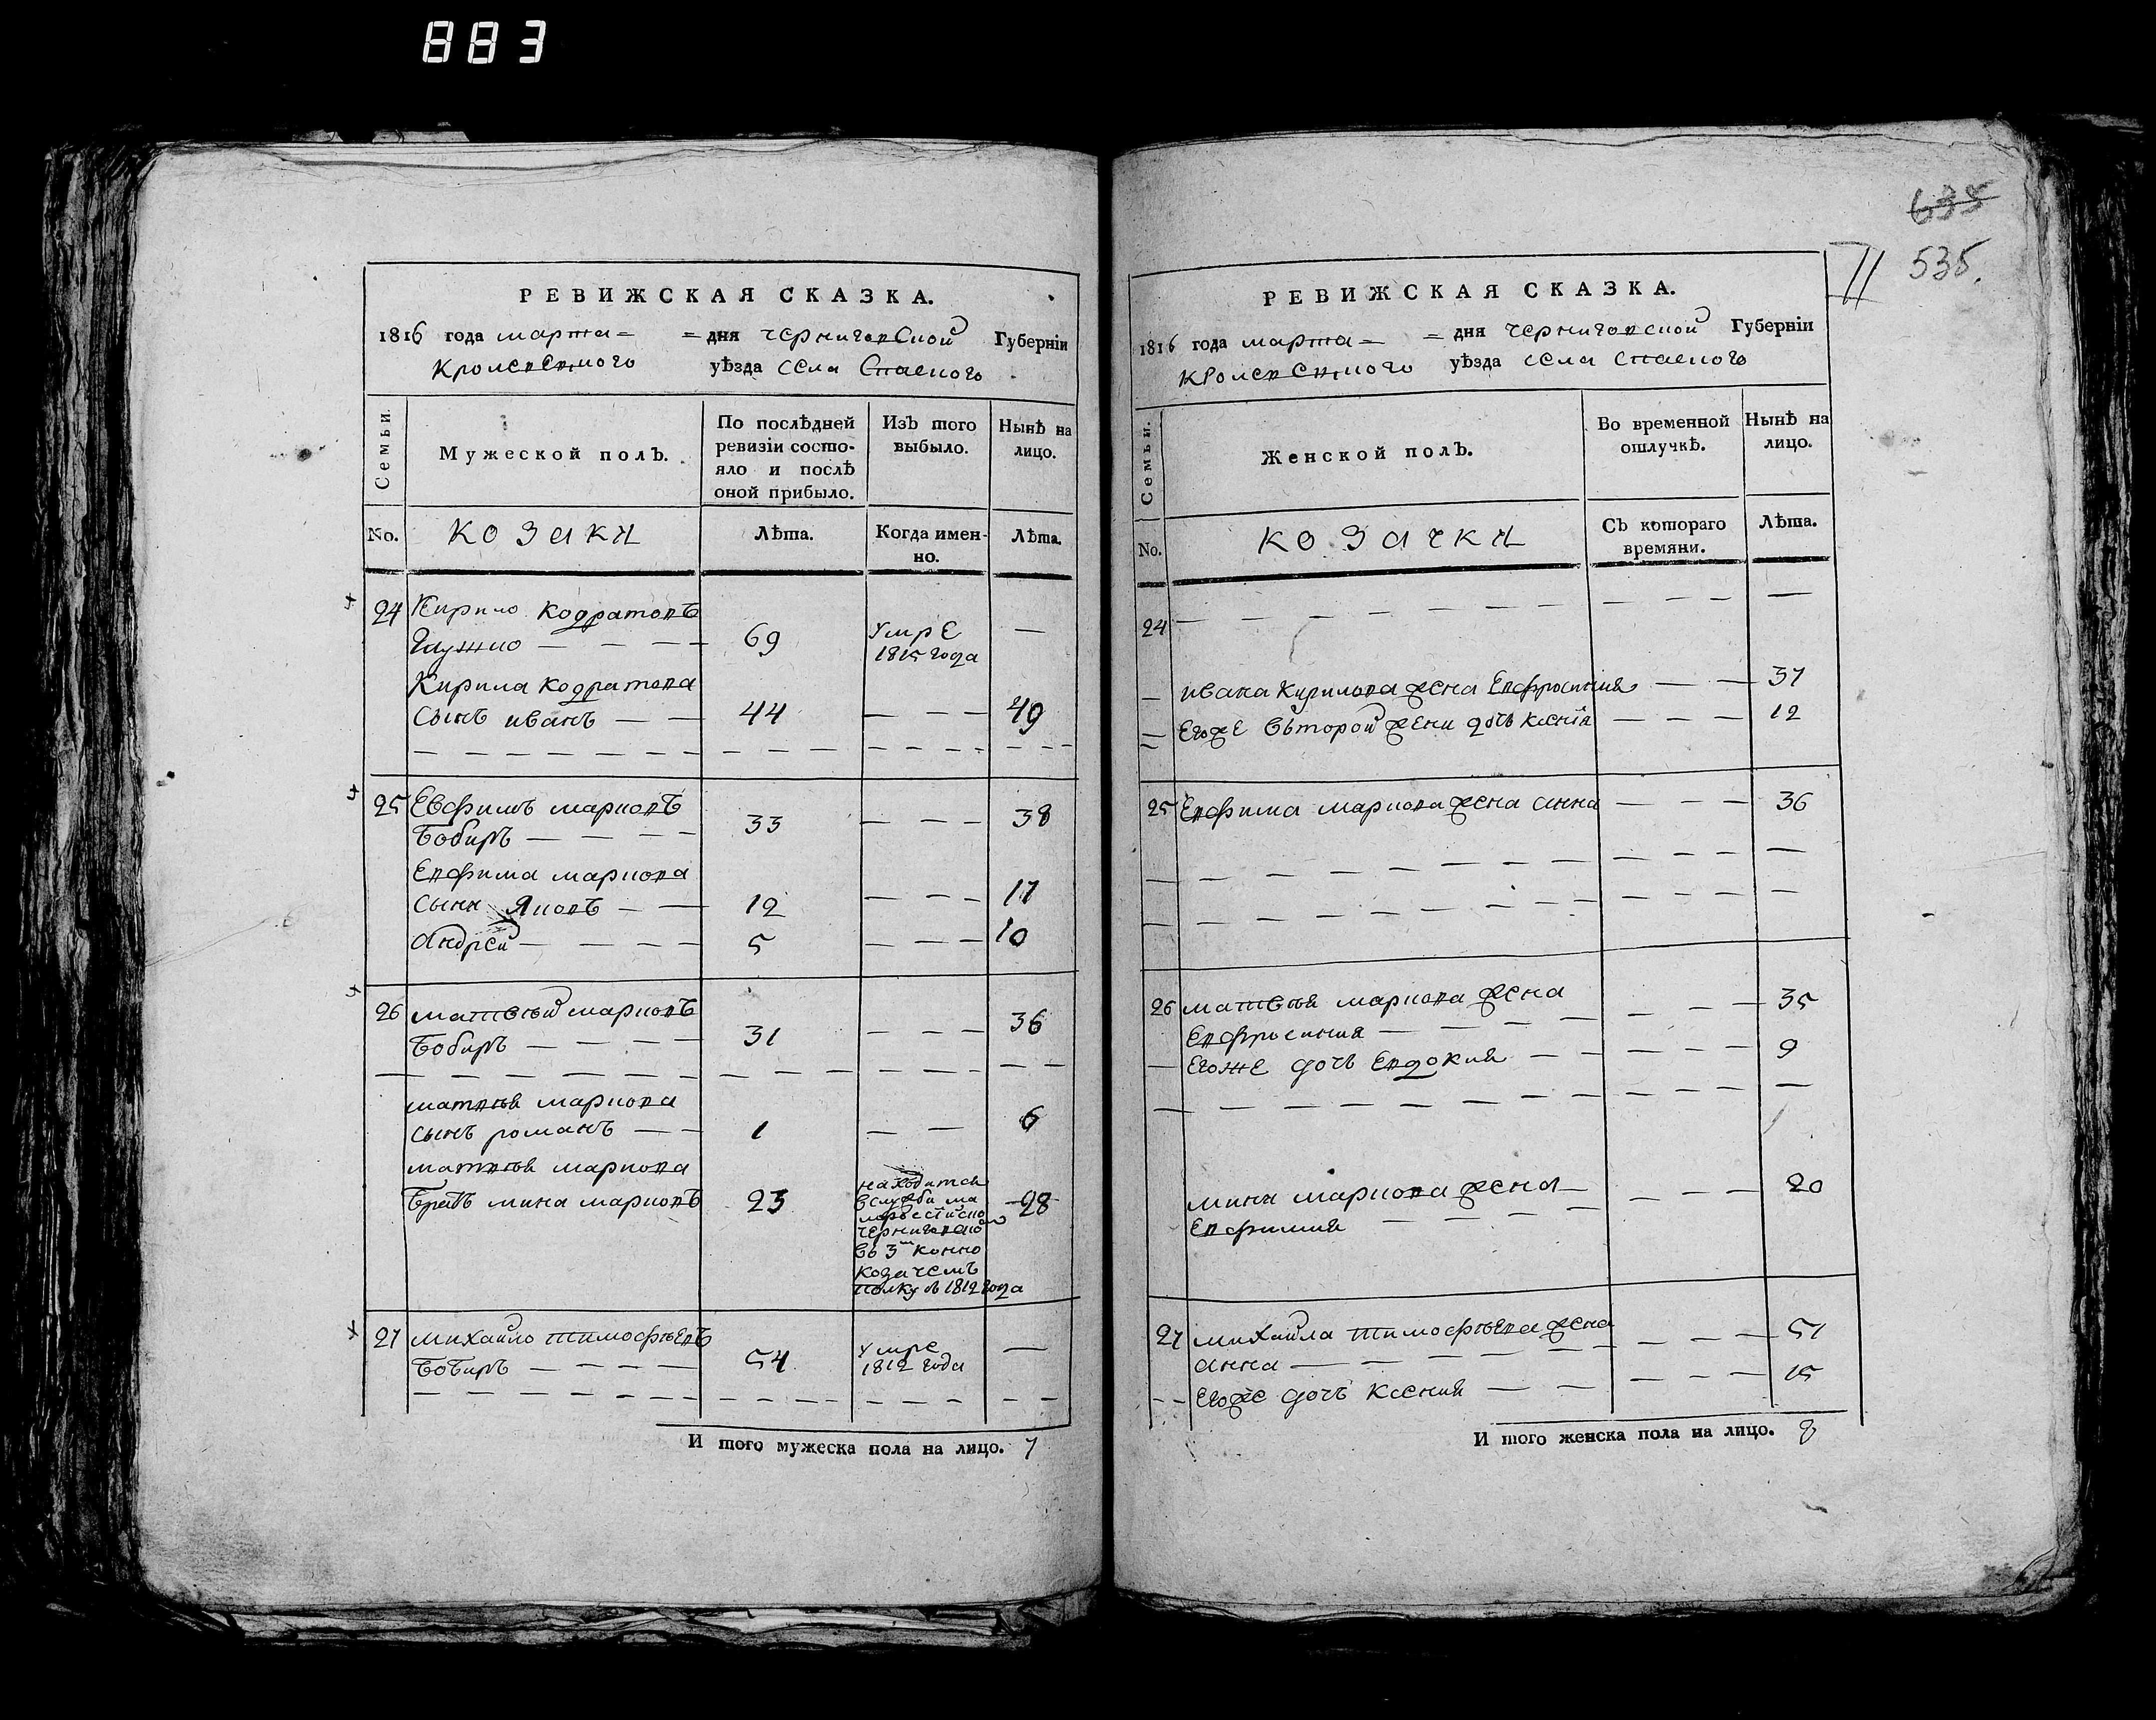 883
635
535.
РЕВИЖСКАЯ СКАЗКА.
1816 года марта = = дня черниговской Губерніи
Кролевецкого уѣзда села Спаского
Семьи.
Мужеской полъ.
По послѣдней
ревизіи состо-
яло и послѣ
оной прибыло.
Изъ того
выбыло.
Нынѣ на
лицо.
No.
козаки
Лѣта.
Когда имен-
но.
Лѣта.
24 Кирило кодратовъ
— — — — 69 умре —
1815 года
Кирила кодратова
сынъ иванъ — — 44 — — — 49
25 Евфимъ марковъ
Бобиръ — — — — 33 — — — 38
Евфима маркова
сыни Яковъ — — 12 — — — 17
Андрей — — — — 5 — — — 10
26 матвей марковъ
Бобиръ — — — — 31 — — — 36
матвѣя маркова
сынъ романъ — — 1 — — 6
матвѣя маркова
братъ мина марковъ 23 28
находится
в службы
черниговско
во 3м конно
козачемъ
полку в 1812 года
27 михайло тимофѣевъ
Бобиръ — — — — 54 умре —
1812 года
И того мужеска пола на лицо. 7
РЕВИЖСКАЯ СКАЗКА.
1816 года марта = = дня черниговской Губерніи
Кролевецкого уѣзда села Спаского
Семьи.
Женской полъ.
Во временной
отлучкѣ.
Нынѣ на
лицо.
No.
козачки
Съ котораго
времяни.
Лѣта.
24 — — — — — — — — — —
— ивана кирилова жена Евфросиния — — 37
Егоже второй жени дочь ксенія — — — 12
25 Евфима маркова жена анна — — — 36
26 матвѣя маркова жена — — — 35
Евфросиния — — — —
— Егоже дочь Евдокия — — — — — 9
мини маркова жена — — — — 20
Евфимия — — — —
27 михайла тимофѣева жена — — — 51
анна — — — — — —
— — Егоже дочь ксения — — — — — 15
И того женска пола на лицо. 8